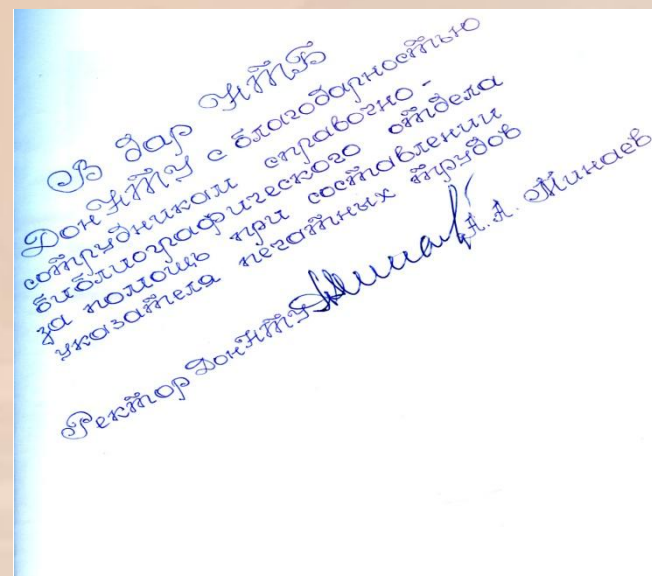 В дар НТБ
ДонНТУ с благодарностью
сотрудникам справочно -
библиографического отдела
за помощь при составлении
указателя печатных трудов
Ректор ДонНТУ А.А. Минаев